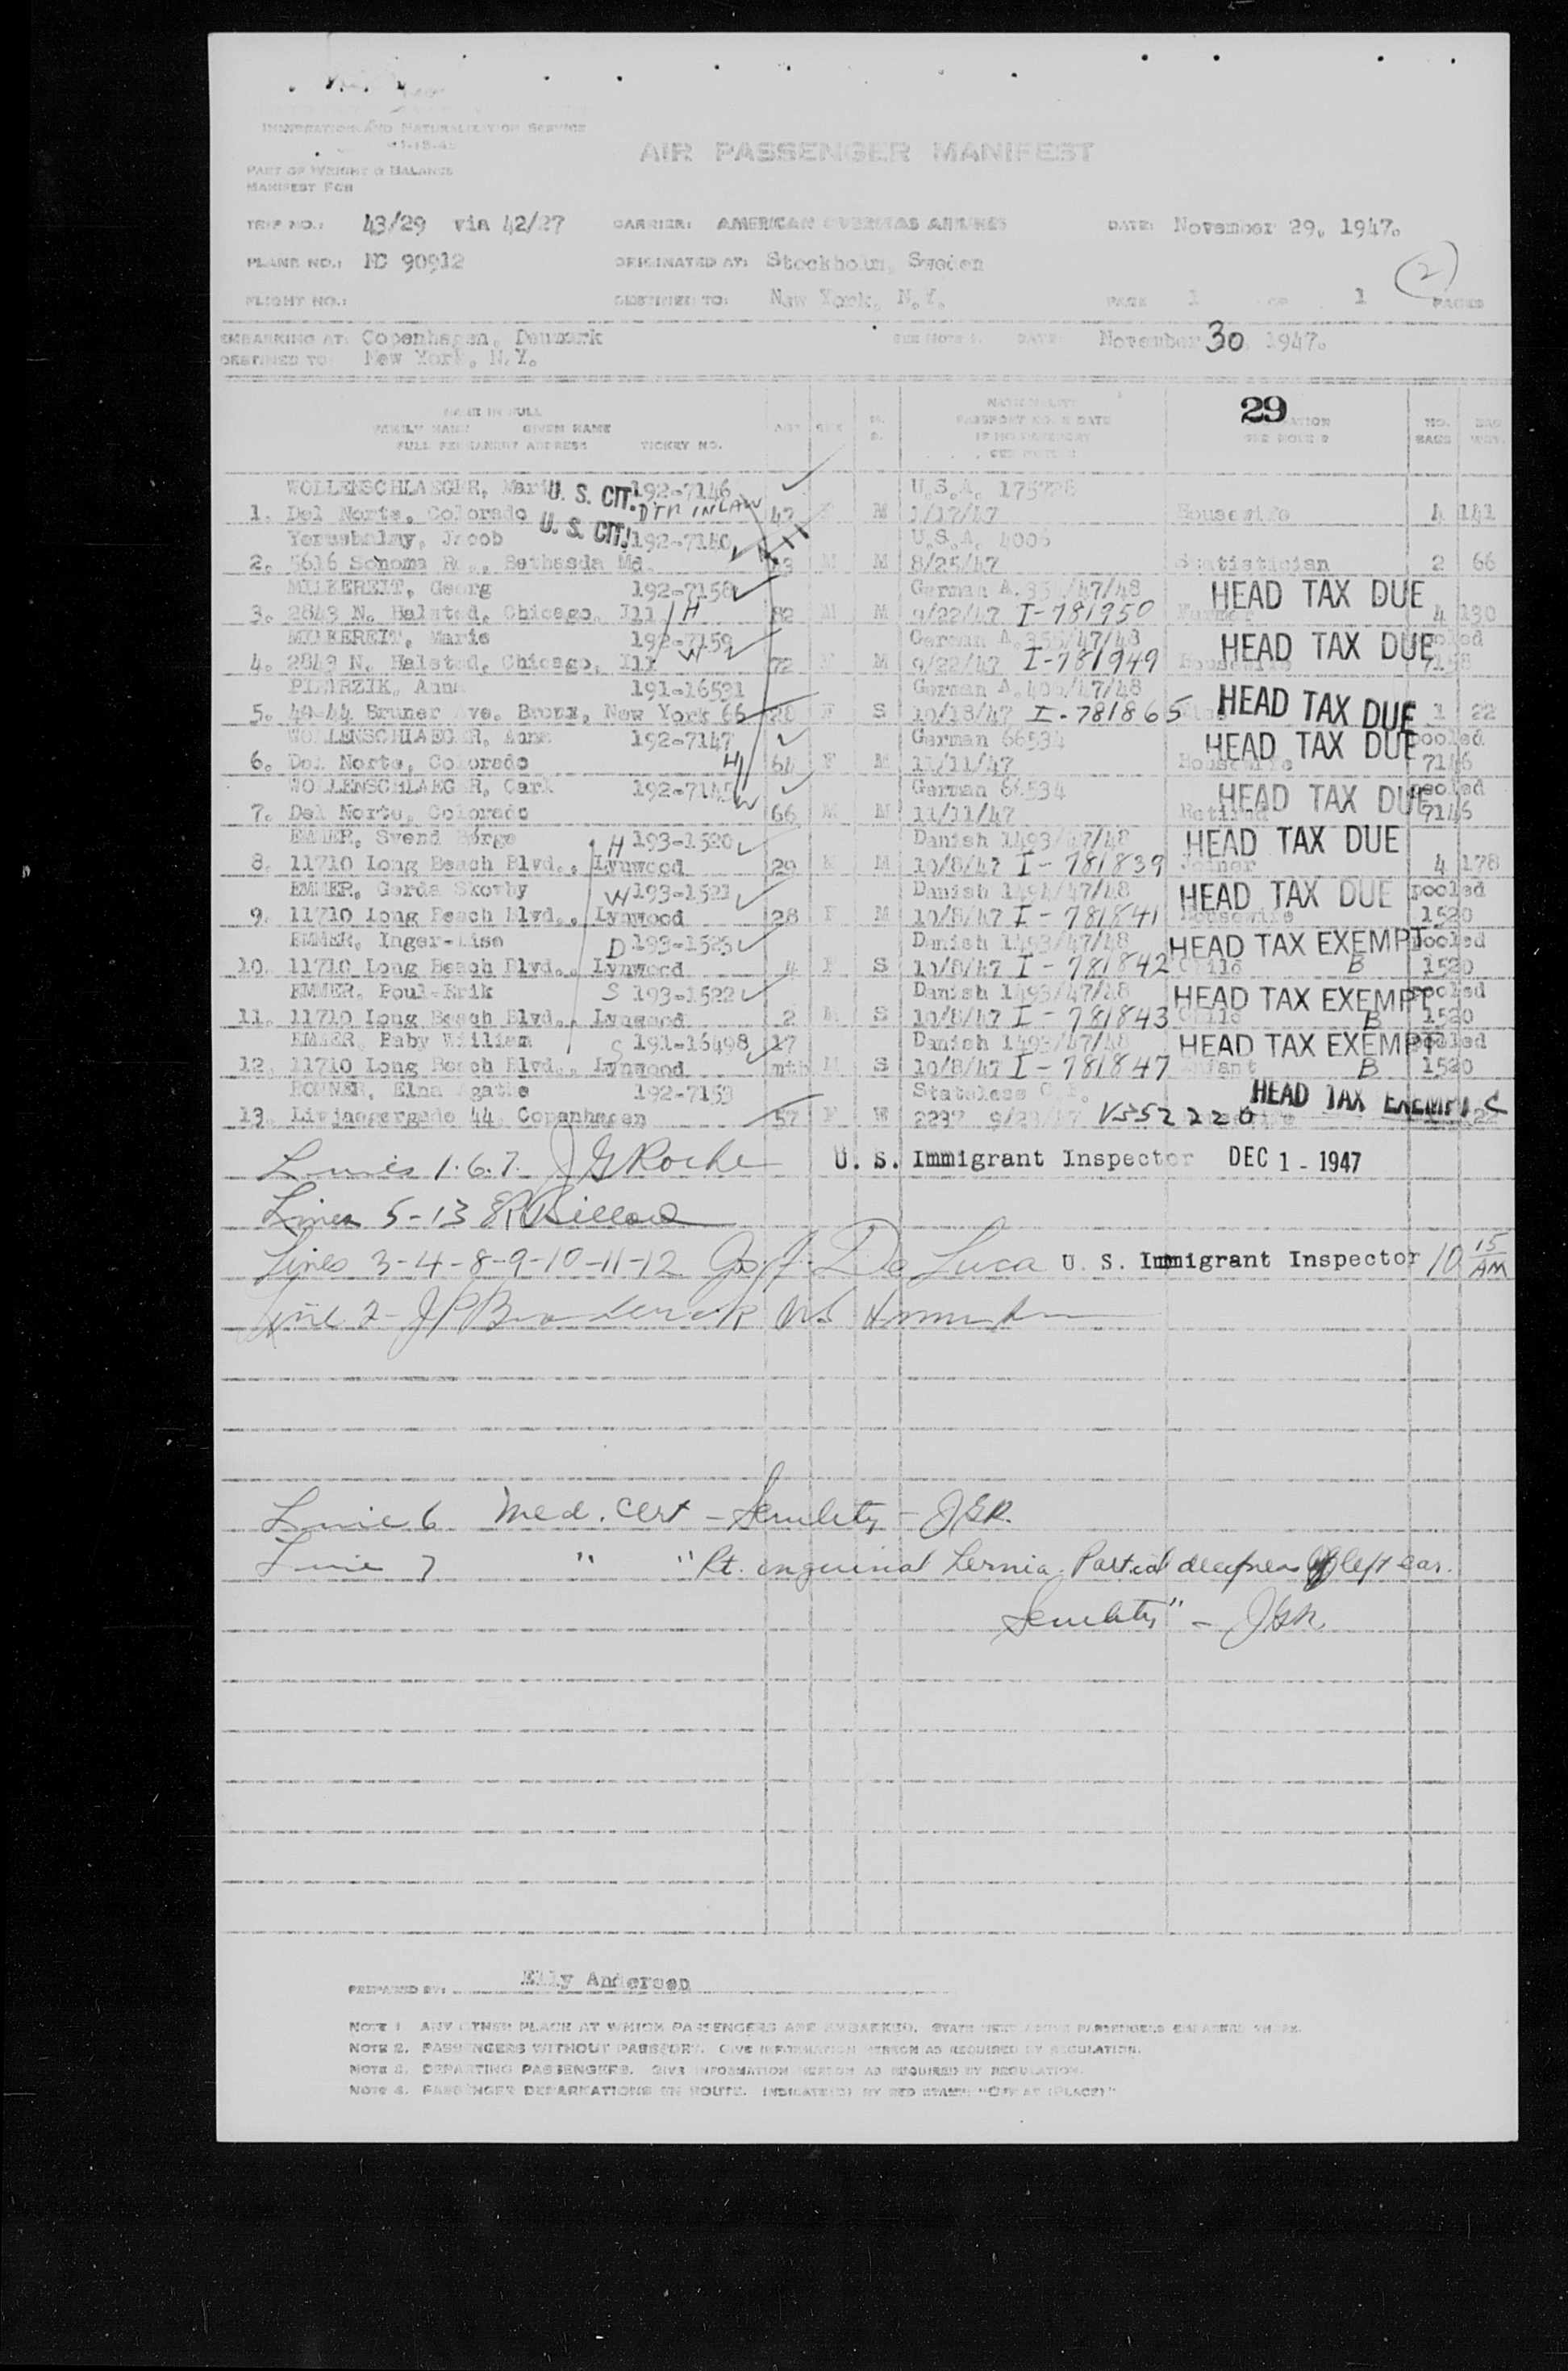 IMMIGRATION AND NATURALIZATION SERVICE
AIR PASSENGER MANIFEST
PART OF WEIGHT & BALANCE
MANIFEST FOR
TRIP NO.: 43/29 via 42/27 CARRIER: AMERICAN OVERSEAS AIRLINES DATE: November 29, 1947.
PLANE NO.: NC 90912 ORIGINATED AT: Stockholm, Sweden
(2)
FLIGHT NO.: DESTINED TO: New York, N.Y. PAGE 1 OF 1 PAGES
EMBARKING AT: Copenhagen, Denmark SEE NOTE 1. DATE: November 30, 1947.
DESTINED TO: New York, N.Y.
29
NAME IN FULL NATIONALITY
FAMILY NAME GIVEN NAME AGE SEX PASSPORT NO. & DATE NO. BAG
FULL PERMANENT ADDRESS TICKET NO. IF NO PASSPORT SEE NOTE BAGS WGT.
WOLLENSCHLAEGER, U. S. CIT. 192-7146 U.S.A.
1. Del Norte, Colorado DTR IN LAW 47 M 1/17/47 Housewife 4 141
Yerushalmy, Jacob U. S. CIT. 192-7140 U.S.A.
2. 5616 Sonoma Bethesda Md. 43 M M 8/25/47 Statistician 2 66
MILKEREIT, Georg 192-7158 German HEAD TAX DUE
3. 2843 N. Halsted, Chicago, Ill H 82 M M 9/22/47 I-781950 Farmer 4 130
MILKEREIT, Marie 192-7159 German HEAD TAX DUE pooled
4. 2843 N. Halsted, Chicago, Ill W 72 M 9/22/47 I-781949 Housewife 7158
Anna 191-16531 German HEAD TAX DUE
5. 40-44 Bruner Ave. Bronx, New York 66 28 F S 10/18/47 I-781865 1 22
WOLLENSCHLAEGER, Anna 192-7147 German 66534 HEAD TAX DUE pooled
6. Del Norte, Colorado H 64 F M 11/11/47 Housewife 7146
WOLLENSCHLAEGER, Carl 192-7145 German 66534 HEAD TAX DUE pooled
7. Del Norte, Colorado W 66 M M 11/11/47 Retired 7146
EMMER, Svend Börge H 193-1520 Danish 1493/47/48 HEAD TAX DUE
8. 11710 Long Beach Blvd., Lynwood 29 M M 10/8/47 I-781839 Joiner 4 178
EMMER, Gerda Skovby W 193-1521 Danish 1494/47/48 HEAD TAX DUE pooled
9. 11710 Long Beach Blvd., Lynwood 28 F M 10/8/47 I-781841 Housewife 1520
EMMER, Inger-Lise D 193-1523 Danish 1493/47/48 HEAD TAX EXEMPT pooled
10. 11710 Long Beach Blvd., Lynwood 4 F S 10/8/47 I-781842 Child B 1520
EMMER, Poul-Erik S 193-1522 Danish 1493/47/48 HEAD TAX EXEMPT pooled
11. 11710 Long Beach Blvd., Lynwood 2 M S 10/8/47 I-781843 Child B 1520
EMMER, Baby William S 191-16498 17 Danish 1493/47/48 HEAD TAX EXEMPT pooled
12. 11710 Long Beach Blvd., Lynwood mth M S 10/8/47 I-781847 Infant B 1520
Elna Agathe 192-7153 Stateless HEAD TAX EXEMPT C
13. Livjaegergade 44, Copenhagen 57 F W V352220
Lines 1.6.7. J G Roche U. S. Immigrant Inspector DEC 1 - 1947
Lines 5-13
Lines 3-4-8-9-10-11-12 Jos J. De Luca U. S. Immigrant Inspector 10 15 AM
Line 2-
Line 6 Med. Cert - Senility - JGR.
Line 7 " " Rt. inguinal hernia. Partial deafness of left ear.
Senility" - JGR.
PREPARED BY: Elly Andersen
NOTE 1. ANY OTHER PLACE AT WHICH PASSENGERS ARE EMBARKED, STATE NEXT ABOVE PASSENGERS EMBARKED THERE.
NOTE 2. PASSENGERS WITHOUT PASSPORT. GIVE INFORMATION HEREON AS REQUIRED BY REGULATION.
NOTE 3. DEPARTING PASSENGERS. GIVE INFORMATION HEREON AS REQUIRED BY REGULATION.
NOTE 4. PASSENGER DEPARKATIONS EN ROUTE. INDICATE(D) BY RED STAMP "OFF AT (PLACE)"